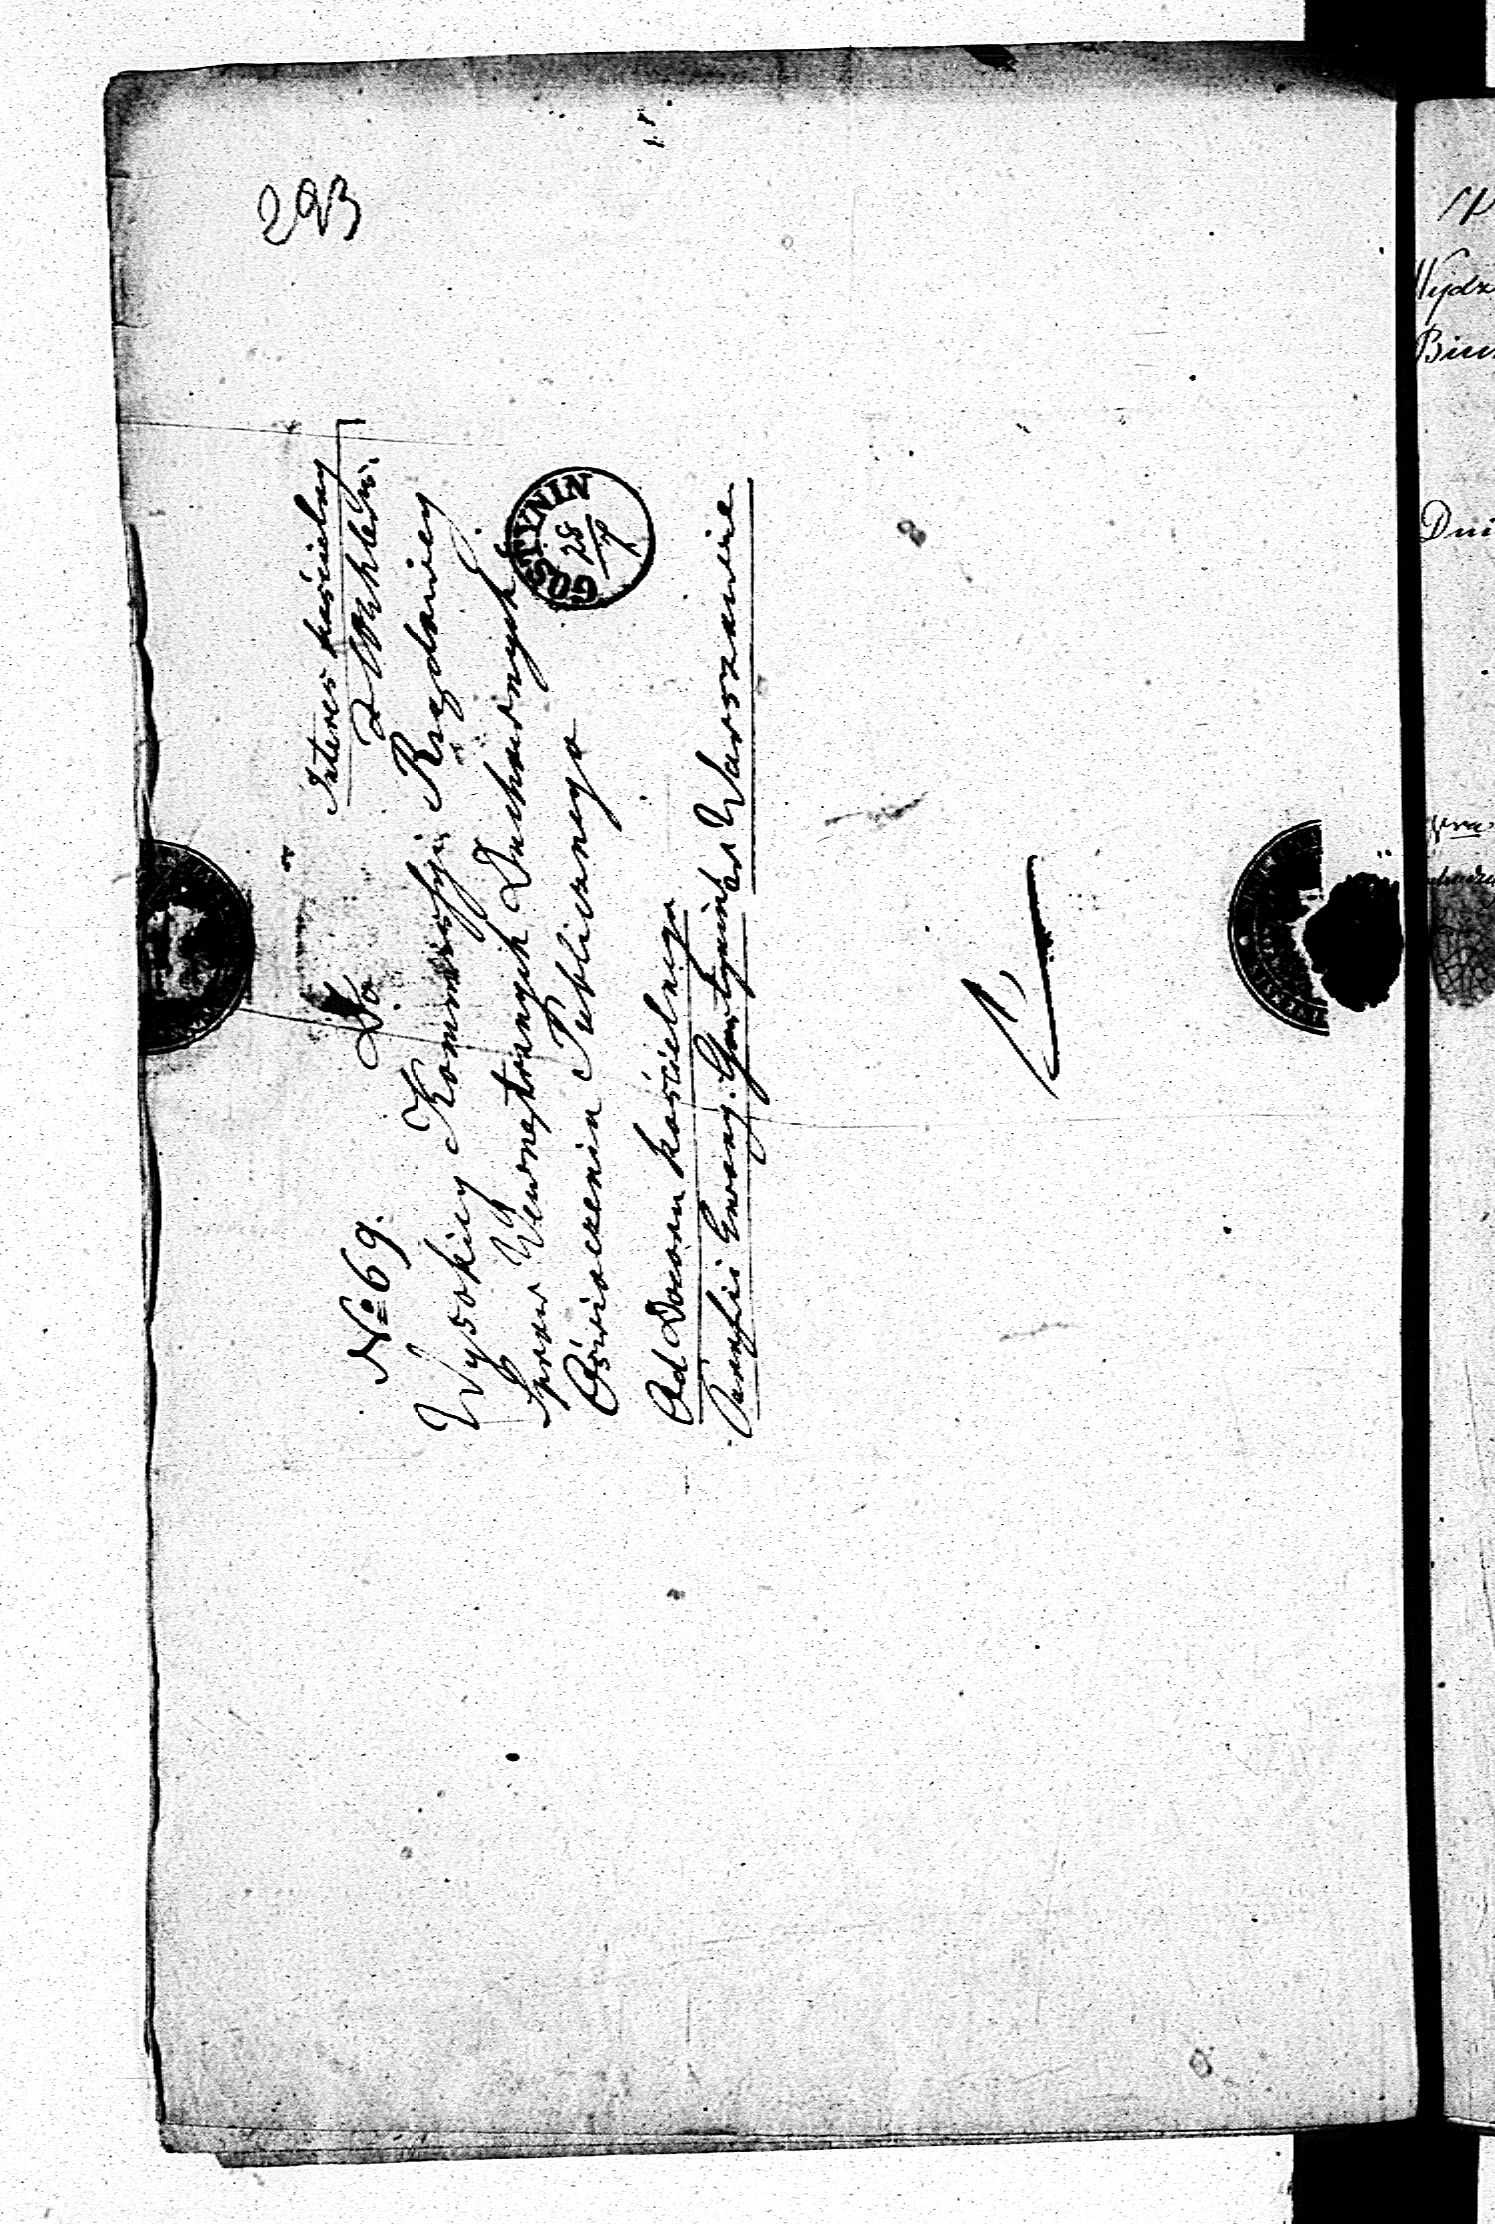 293
Interes kościelny
No 69.
Do
Wysokiey Kommissyi Rządowey
Spraw Wewnętrznych Duchownych i
Oświecenia Publicznego
w Warszawie
GOSTYNIN
28
Od Dozoru kościelnego
Parafii Ewang. Gostynin
Wydz
Biu